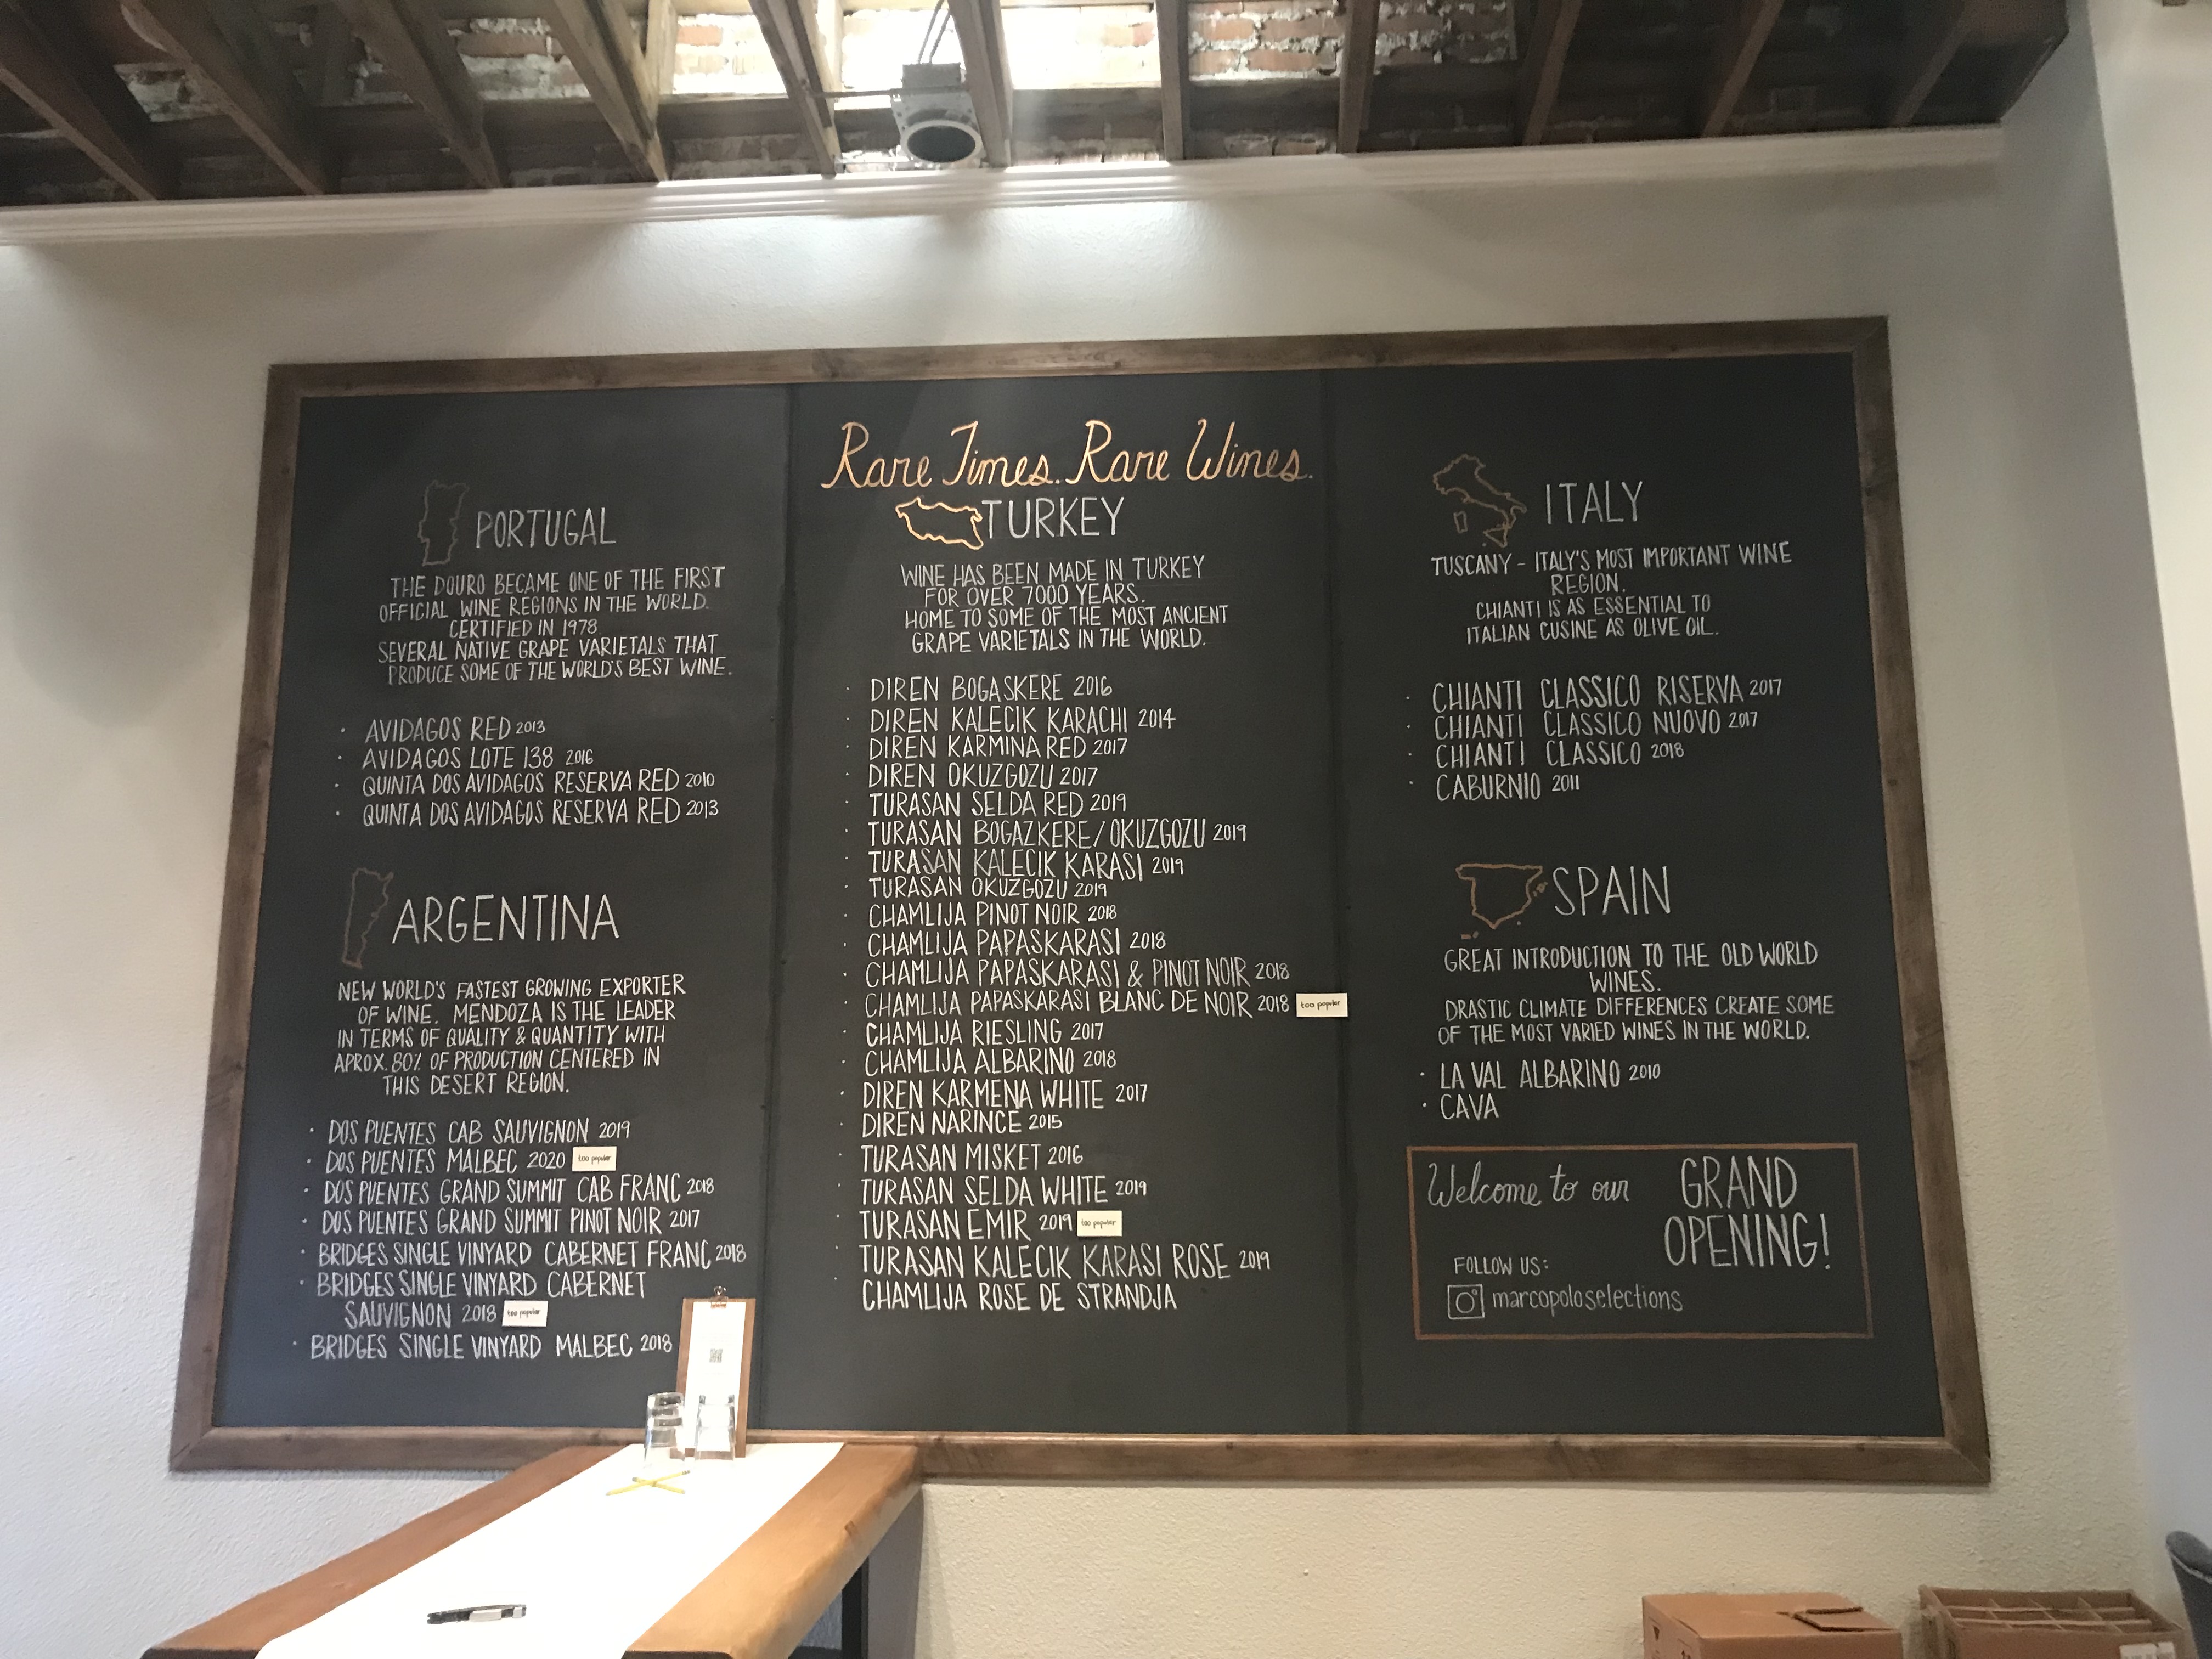 Rare Times. Rare Wines.
PORTUGAL
THE DOURO BECAME ONE OF THE FIRST
OFFICIAL WINE REGIONS IN THE WORLD.
CERTIFIED IN 1978
SEVERAL NATIVE GRAPE VARIETALS THAT
PRODUCE SOME OF THE WORLD'S BEST WINE.
· AVIDAGOS RED 2013
· AVIDAGOS LOTE 138 2016
· QUINTA DOS AVIDAGOS RESERVA RED 2010
· QUINTA DOS AVIDAGOS RESERVA RED 2013
ARGENTINA
NEW WORLD'S FASTEST GROWING EXPORTER
OF WINE. MENDOZA IS THE LEADER
IN TERMS OF QUALITY & QUANTITY WITH
APROX. 80% OF PRODUCTION CENTERED IN
THIS DESERT REGION.
· DOS PUENTES CAB SAUVIGNON 2019
· DOS PUENTES MALBEC 2020 too popular
· DOS PUENTES GRAND SUMMIT CAB FRANC 2018
· DOS PUENTES GRAND SUMMIT PINOT NOIR 2017
· BRIDGES SINGLE VINYARD CABERNET FRANC 2018
· BRIDGES SINGLE VINYARD CABERNET
SAUVIGNON 2018 too popular
· BRIDGES SINGLE VINYARD MALBEC 2018
TURKEY
WINE HAS BEEN MADE IN TURKEY
FOR OVER 7000 YEARS.
HOME TO SOME OF THE MOST ANCIENT
GRAPE VARIETALS IN THE WORLD.
· DIREN BOGASKERE 2016
· DIREN KALECIK KARACHI 2014
· DIREN KARMINA RED 2017
· DIREN OKUZGOZU 2017
· TURASAN SELDA RED 2019
· TURASAN BOGAZKERE/OKUZGOZU 2019
· TURASAN KALECIK KARASI 2019
· TURASAN OKUZGOZU 2019
· CHAMLIJA PINOT NOIR 2018
· CHAMLIJA PAPASKARASI 2018
· CHAMLIJA PAPASKARASI & PINOT NOIR 2018
· CHAMLIJA PAPASKARASI BLANC DE NOIR 2018 too popular
· CHAMLIJA RIESLING 2017
· CHAMLIJA ALBARINO 2018
· DIREN KARMENA WHITE 2017
· DIREN NARINCE 2015
· TURASAN MISKET 2016
· TURASAN SELDA WHITE 2019
· TURASAN EMIR 2019 too popular
· TURASAN KALECIK KARASI ROSE 2019
· CHAMLIJA ROSE DE STRANDJA
ITALY
TUSCANY - ITALY'S MOST IMPORTANT WINE
REGION.
CHIANTI IS AS ESSENTIAL TO
ITALIAN CUSINE AS OLIVE OIL.
· CHIANTI CLASSICO RISERVA 2017
· CHIANTI CLASSICO NUOVO 2017
· CHIANTI CLASSICO 2018
· CABURNIO 2011
SPAIN
GREAT INTRODUCTION TO THE OLD WORLD
WINES.
DRASTIC CLIMATE DIFFERENCES CREATE SOME
OF THE MOST VARIED WINES IN THE WORLD.
· LA VAL ALBARINO 2010
· CAVA
Welcome to our GRAND
OPENING!
FOLLOW US:
marcopoloselections